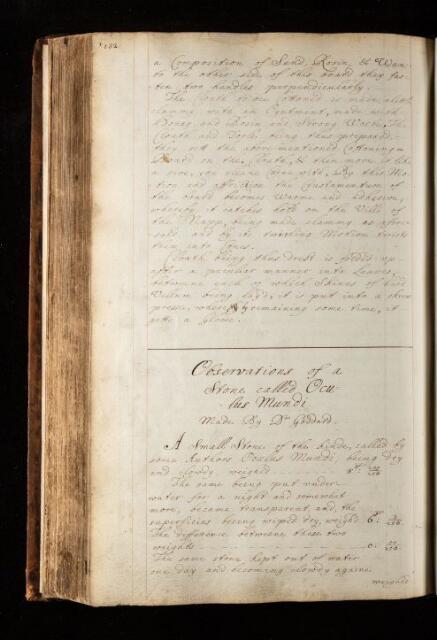 182
a Composition of Sand, Rosin, &
to the other side of this board they fas-
ten two handles perpendicularly.
The Cloath to be Cottoned is made a little
clammy with an Oyntment, made with
Honey and Rosin in a Strong Wort. The
Cloath and Tools being thus prepared,
they sett the above mentioned Cottoning
Board on the Cloath, & then move it like
a sive, you cleane Corne with, By this Mo-
tion and affriction the Instrumentum of
the board becomes Warme and Adhesive,
whereby it catches hold on the Villi of
the Napp, being made clammy as afore-
said and by its twirling Motion twists
them into Cones.
Cloath being thus drest is folded up
after a peculiar manner into Leaves,
betweene each of which Skines of
Vellum being lay'd, it is put into a skrew
presse, where by remaining some time, it
getts a Glosse.
Observations of a
Stone called Ocu-
lus Mundi
Made By Dr Goddard.
A Small Stone of the kinde, called by
some Authors Oculus Mundi, being dry
and clowdy weighed
The same being put under
water for a night and somewhat
more, became transparent, and the
superficies being wiped dry, weighd 6:
The difference betweene these two
weights 0:
The same stone kept out of water
one day and becoming clowdy againe
weighed